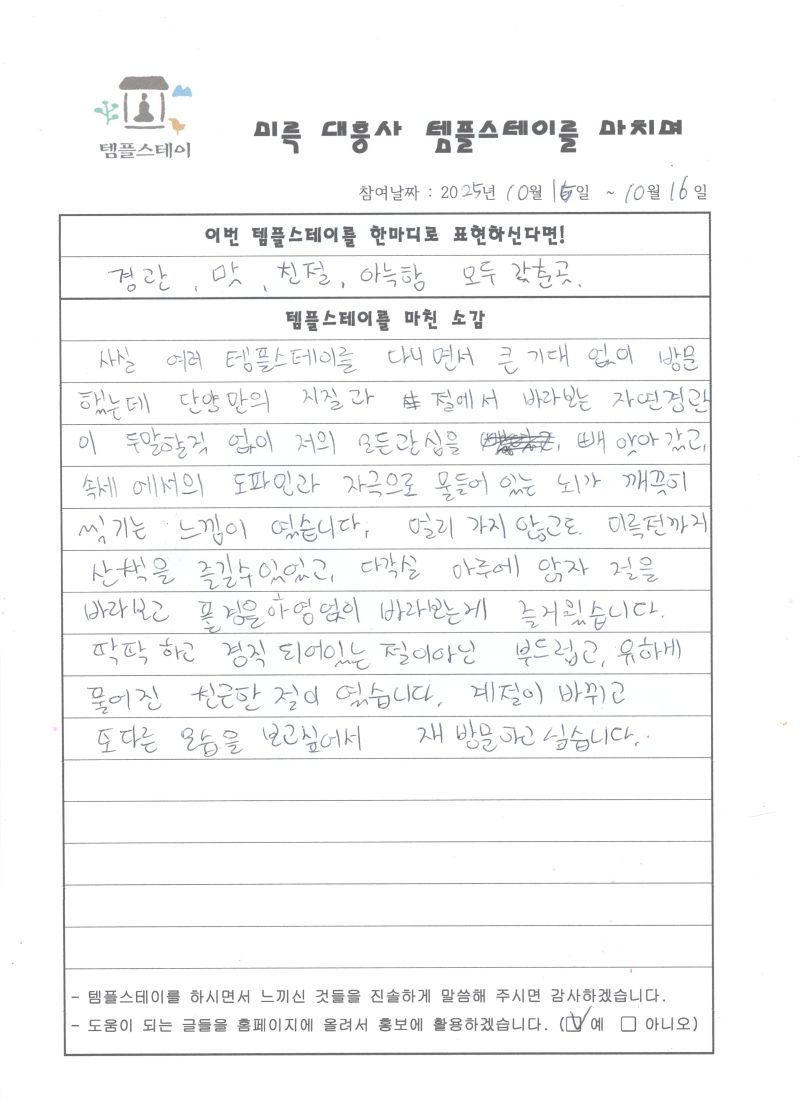 템플스테이
미륵 대흥사 템플스테이를 마치며
참여날짜 : 2025년 10월 15일 ~ 10월 16일
이번 템플스테이를 한마디로 표현하신다면!
경관, 맛, 친절, 아늑함 모두 갖춘곳.
템플스테이를 마친 소감
사실 여러 템플스테이를 다니면서 큰 기대 없이 방문
했는데 단양만의 지질과 절에서 바라보는 자연경관
이 두말할것 없이 저의 모든관심을 빼앗아 갔고,
속세에서의 도파민과 자극으로 물들어 있는 뇌가 깨끗히
씻기는 느낌이 였습니다. 멀리 가지 않고도 미륵전까지
산책을 즐길수있었고, 다각실 마루에 앉자 절을
바라보고 풍경을 하염없이 바라보는게 즐거웠습니다.
딱딱 하고 경직 되어있는 절이아닌 부드럽고, 유하게
풀어진 친근한 절이 였습니다. 계절이 바뀌고
또다른 모습을 보고싶어서 재 방문하고 싶습니다.
- 템플스테이를 하시면서 느끼신 것들을 진솔하게 말씀해 주시면 감사하겠습니다.
- 도움이 되는 글들을 홈페이지에 올려서 홍보에 활용하겠습니다. (☑ 예 □ 아니오)